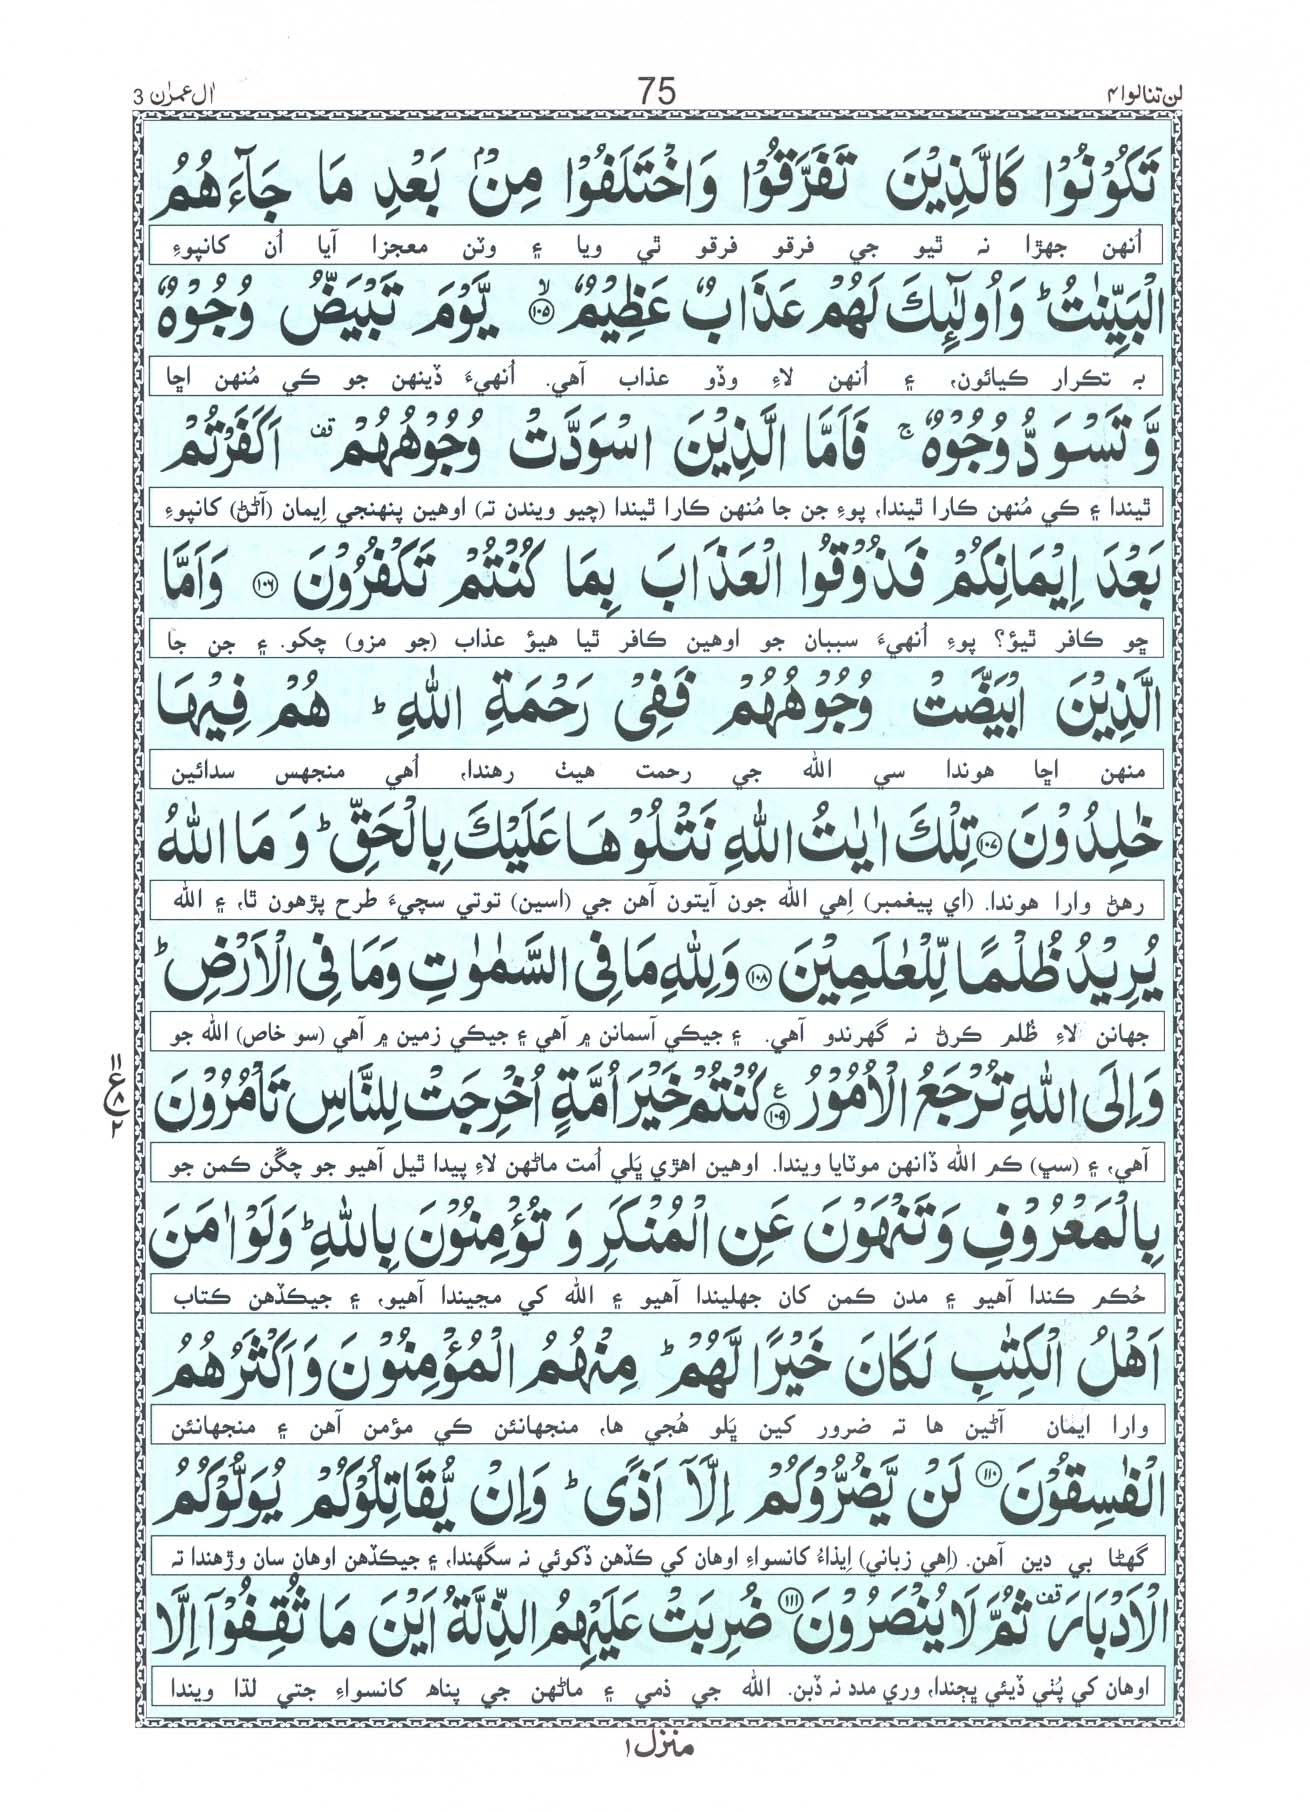 لن تنالوا ۴
75
اٰل عمرٰن 3
تَكُوْنُوْا كَالَّذِيْنَ تَفَرَّقُوْا وَاخْتَلَفُوْا مِنْۢ بَعْدِ مَا جَآءَهُمُ
اُنهن جهڙا نہ ٿيو جي فرقو فرقو ٿي ويا ۽ وٽن معجزا آيا اُن کانپوءِ
الْبَيِّنٰتُ ؕ وَاُولٰٓئِكَ لَهُمْ عَذَابٌ عَظِيْمٌ ۙ﴿۱۰۵﴾ يَّوْمَ تَبْيَضُّ وُجُوْهٌ
بہ تکرار ڪيائون، ۽ اُنهن لاءِ وڏو عذاب آهي. اُنهيءَ ڏينهن جو ڪي مُنهن اڇا
وَّتَسْوَدُّ وُجُوْهٌ ۚ فَاَمَّا الَّذِيْنَ اسْوَدَّتْ وُجُوْهُهُمْ قف اَكَفَرْتُمْ
ٿيندا ۽ ڪي مُنهن ڪارا ٿيندا، پوءِ جن جا مُنهن ڪارا ٿيندا (چيو ويندن تہ) اوهين پنهنجي اِيمان (آڻڻ) کانپوءِ
بَعْدَ اِيْمَانِكُمْ فَذُوْقُوا الْعَذَابَ بِمَا كُنْتُمْ تَكْفُرُوْنَ ﴿۱۰۶﴾ وَاَمَّا
ڇو ڪافر ٿيؤ؟ پوءِ اُنهيءَ سببان جو اوهين ڪافر ٿيا هيؤ عذاب (جو مزو) چکو. ۽ جن جا
الَّذِيْنَ ابْيَضَّتْ وُجُوْهُهُمْ فَفِيْ رَحْمَةِ اللّٰهِ ؕ هُمْ فِيْهَا
منهن اڇا هوندا سي الله جي رحمت هيٺ رهندا، اُهي منجهس سدائين
خٰلِدُوْنَ ﴿۱۰۷﴾ تِلْكَ اٰيٰتُ اللّٰهِ نَتْلُوْهَا عَلَيْكَ بِالْحَقِّ ؕ وَمَا اللّٰهُ
رهڻ وارا هوندا. (اي پيغمبر) اِهي الله جون آيتون آهن جي (اسين) توتي سچيءَ طرح پڙهون ٿا، ۽ الله
يُرِيْدُ ظُلْمًا لِّلْعٰلَمِيْنَ ﴿۱۰۸﴾ وَلِلّٰهِ مَا فِي السَّمٰوٰتِ وَمَا فِي الْاَرْضِ ؕ
جهانن لاءِ ظُلم ڪرڻ نہ گهرندو آهي. ۽ جيڪي آسمانن ۾ آهي ۽ جيڪي زمين ۾ آهي (سو خاص) الله جو
وَاِلَى اللّٰهِ تُرْجَعُ الْاُمُوْرُ ﴿۱۰۹﴾ ع كُنْتُمْ خَيْرَ اُمَّةٍ اُخْرِجَتْ لِلنَّاسِ تَاْمُرُوْنَ
۱۱ ع ۸ ۲
آهي، ۽ (سڀ) ڪم الله ڏانهن موٽايا ويندا. اوهين اهڙي ڀَلي اُمت ماڻهن لاءِ پيدا ٿيل آهيو جو چڱن ڪمن جو
بِالْمَعْرُوْفِ وَتَنْهَوْنَ عَنِ الْمُنْكَرِ وَتُؤْمِنُوْنَ بِاللّٰهِ ؕ وَلَوْ اٰمَنَ
حُڪم ڪندا آهيو ۽ مدن ڪمن کان جهليندا آهيو ۽ الله کي مڃيندا آهيو، ۽ جيڪڏهن ڪتاب
اَهْلُ الْكِتٰبِ لَكَانَ خَيْرًا لَّهُمْ ؕ مِنْهُمُ الْمُؤْمِنُوْنَ وَاَكْثَرُهُمُ
وارا ايمان آڻين ها تہ ضرور کين ڀَلو هُجي ها، منجهانئن ڪي مؤمن آهن ۽ منجهانئن
الْفٰسِقُوْنَ ﴿۱۱۰﴾ لَنْ يَّضُرُّوْكُمْ اِلَّآ اَذًى ؕ وَاِنْ يُّقَاتِلُوْكُمْ يُوَلُّوْكُمُ
گهڻا بي دين آهن. (اِهي زباني) اِيذاءُ کانسواءِ اوهان کي ڪڏهن ڏکوئي نہ سگهندا، ۽ جيڪڏهن اوهان سان وڙهندا تہ
الْاَدْبَارَ قف ثُمَّ لَا يُنْصَرُوْنَ ﴿۱۱۱﴾ ضُرِبَتْ عَلَيْهِمُ الذِّلَّةُ اَيْنَ مَا ثُقِفُوْٓا اِلَّا
اوهان کي پُٺي ڏيئي ڀڄندا، وري مدد نہ ڏبن. الله جي ذمي ۽ ماڻهن جي پناهہ کانسواءِ جتي لڌا ويندا
منزل ۱